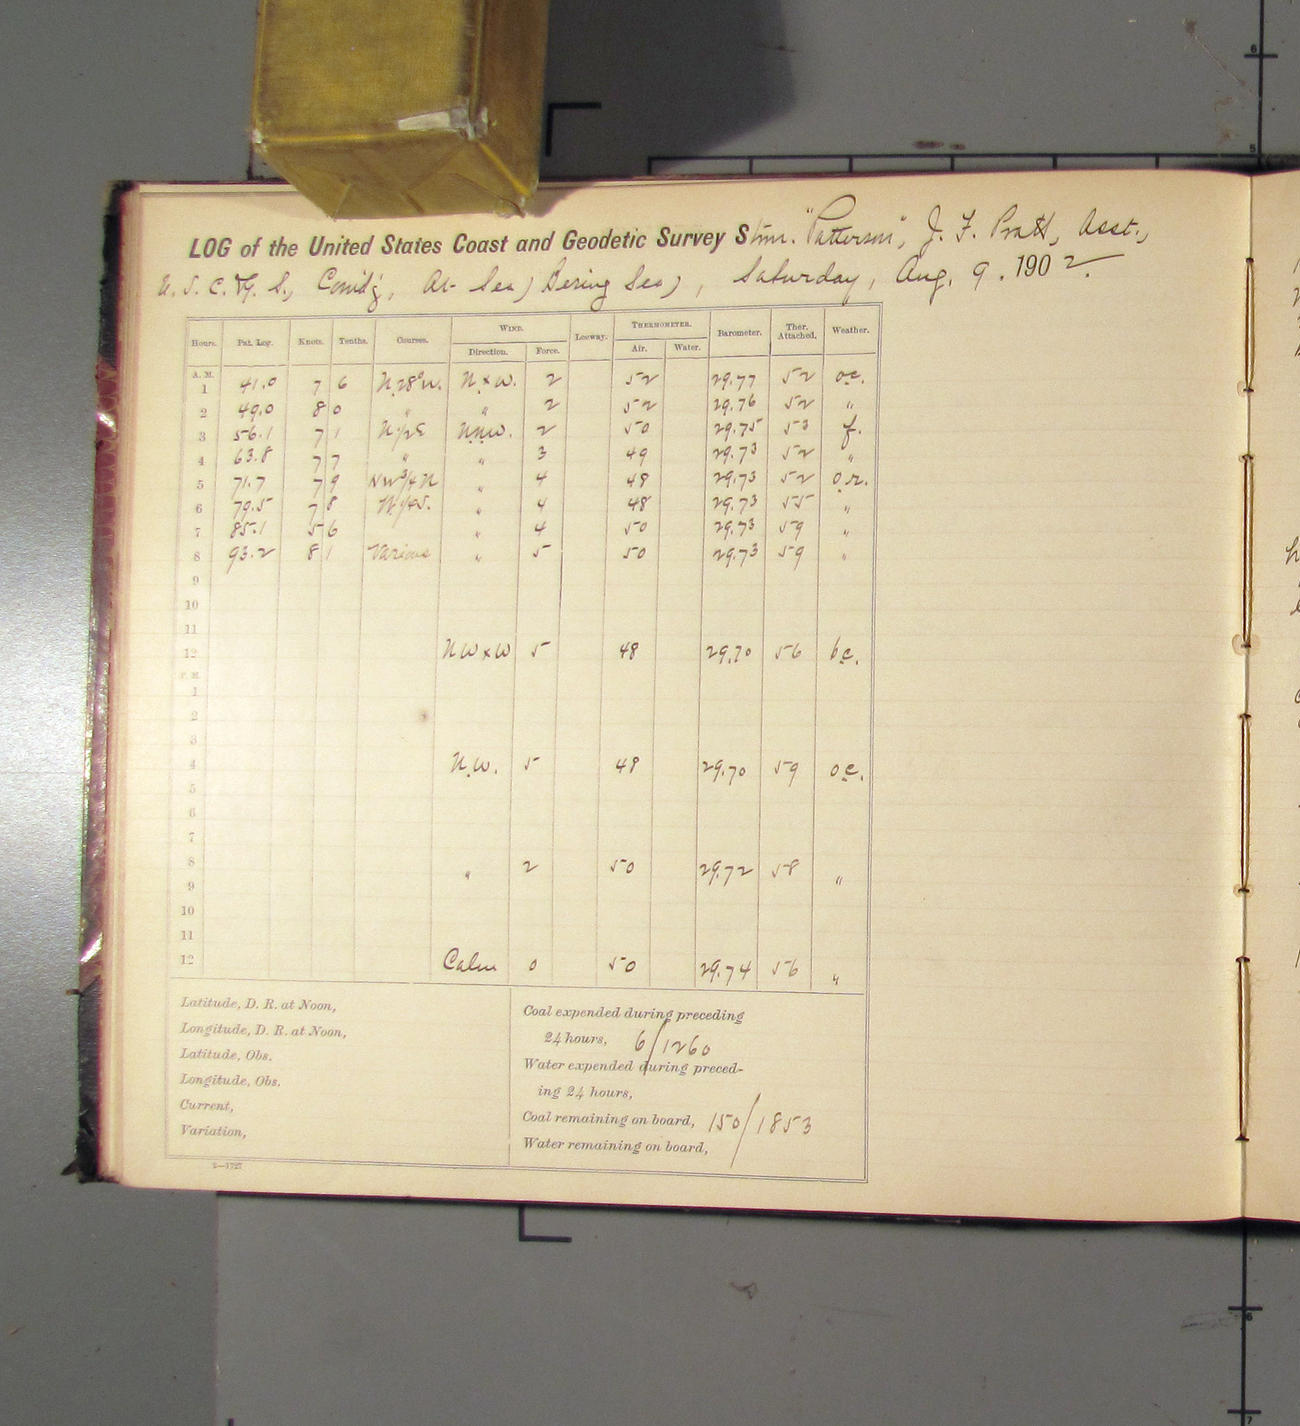 LOG of the United States Coast and Geodetic Survey Stmr. "Patterson", J. F. Pratt, Asst.,
U. S. C. & G. S., Comd'g, At Sea (Bering Sea), Saturday, Aug. 9. 1902.
Hours. Pat. Log. Knots. Tenths. Courses. WIND. Direction. Force. Leeway. THERMOMETER. Air. Water. Barometer. Ther. Attached. Weather.
A. M.
1 41.0 7 6 N.28°W. N.xW. 2 52 29.77 52 o.c.
2 49.0 8 0 " " 2 52 29.76 52 "
3 56.1 7 1 N1/2E N.N.W. 2 50 29.75 53 f.
4 63.8 7 7 " " 3 49 29.73 52 "
5 71.7 7 9 NW3/4N " 4 48 29.73 52 o.r.
6 79.5 7 8 " 4 48 29.73 55 "
7 85.1 5 6 " 4 50 29.73 59 "
8 93.2 8 1 Various " 5 50 29.73 59 "
9
10
11
12 NWxW 5 48 29.70 56 b.c.
P. M.
1
2
3
4 N.W. 5 48 29.70 59 o.c.
5
6
7
8 " 2 50 29.72 58 "
9
10
11
12 Calm 0 50 29.74 56 "
Latitude, D. R. at Noon,
Longitude, D. R. at Noon,
Latitude, Obs.
Longitude, Obs.
Current,
Variation,
Coal expended during preceding
24 hours, 6/1260
Water expended during preced-
ing 24 hours,
Coal remaining on board, 150/1853
Water remaining on board,
2—1727